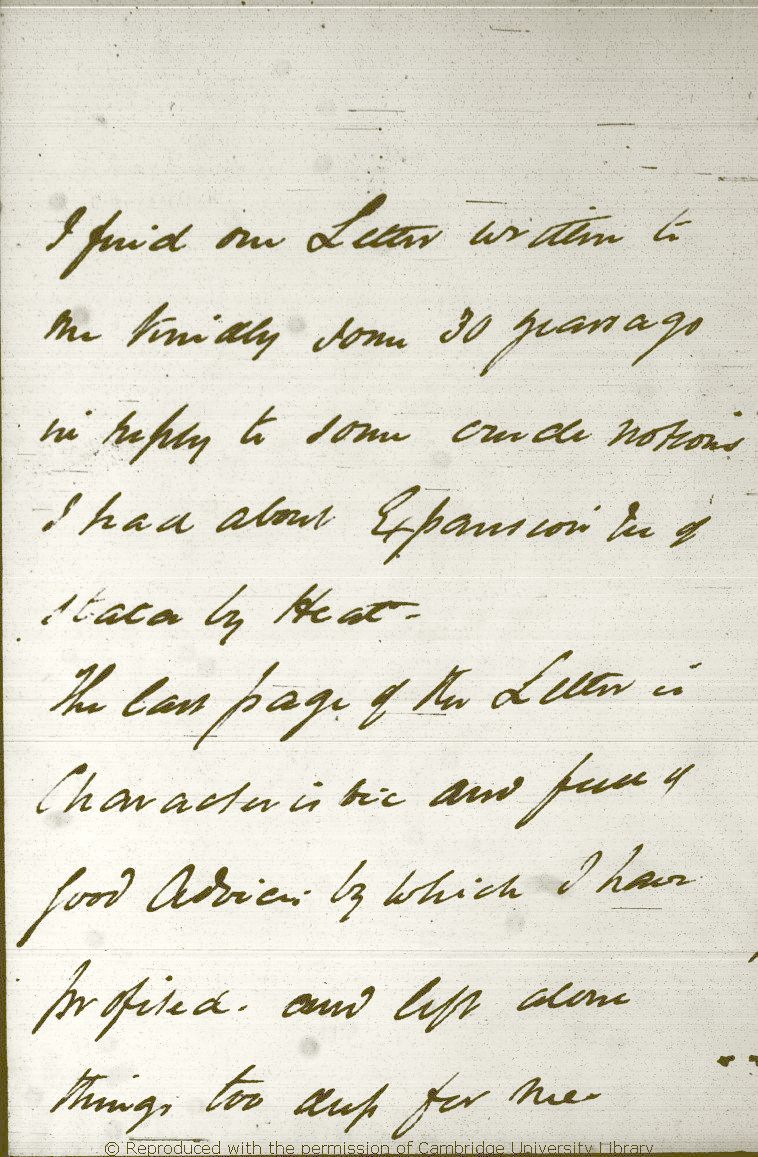 I find one Letter written to
me kindly some 30 years ago
in reply to some crude notions
I had about Expansion &c of
strata by Heat -
The last page of the Letter is
Characteristic and full of
good Advice: by which I have
profited. and left alone
things too deep for me.
© Reproduced with the permission of Cambridge University Library